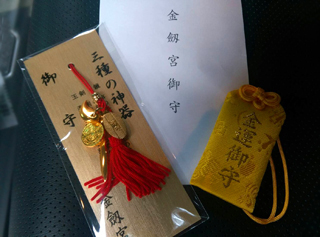 三種の神器
御守
金劔宮
金劔宮御守
金運御守